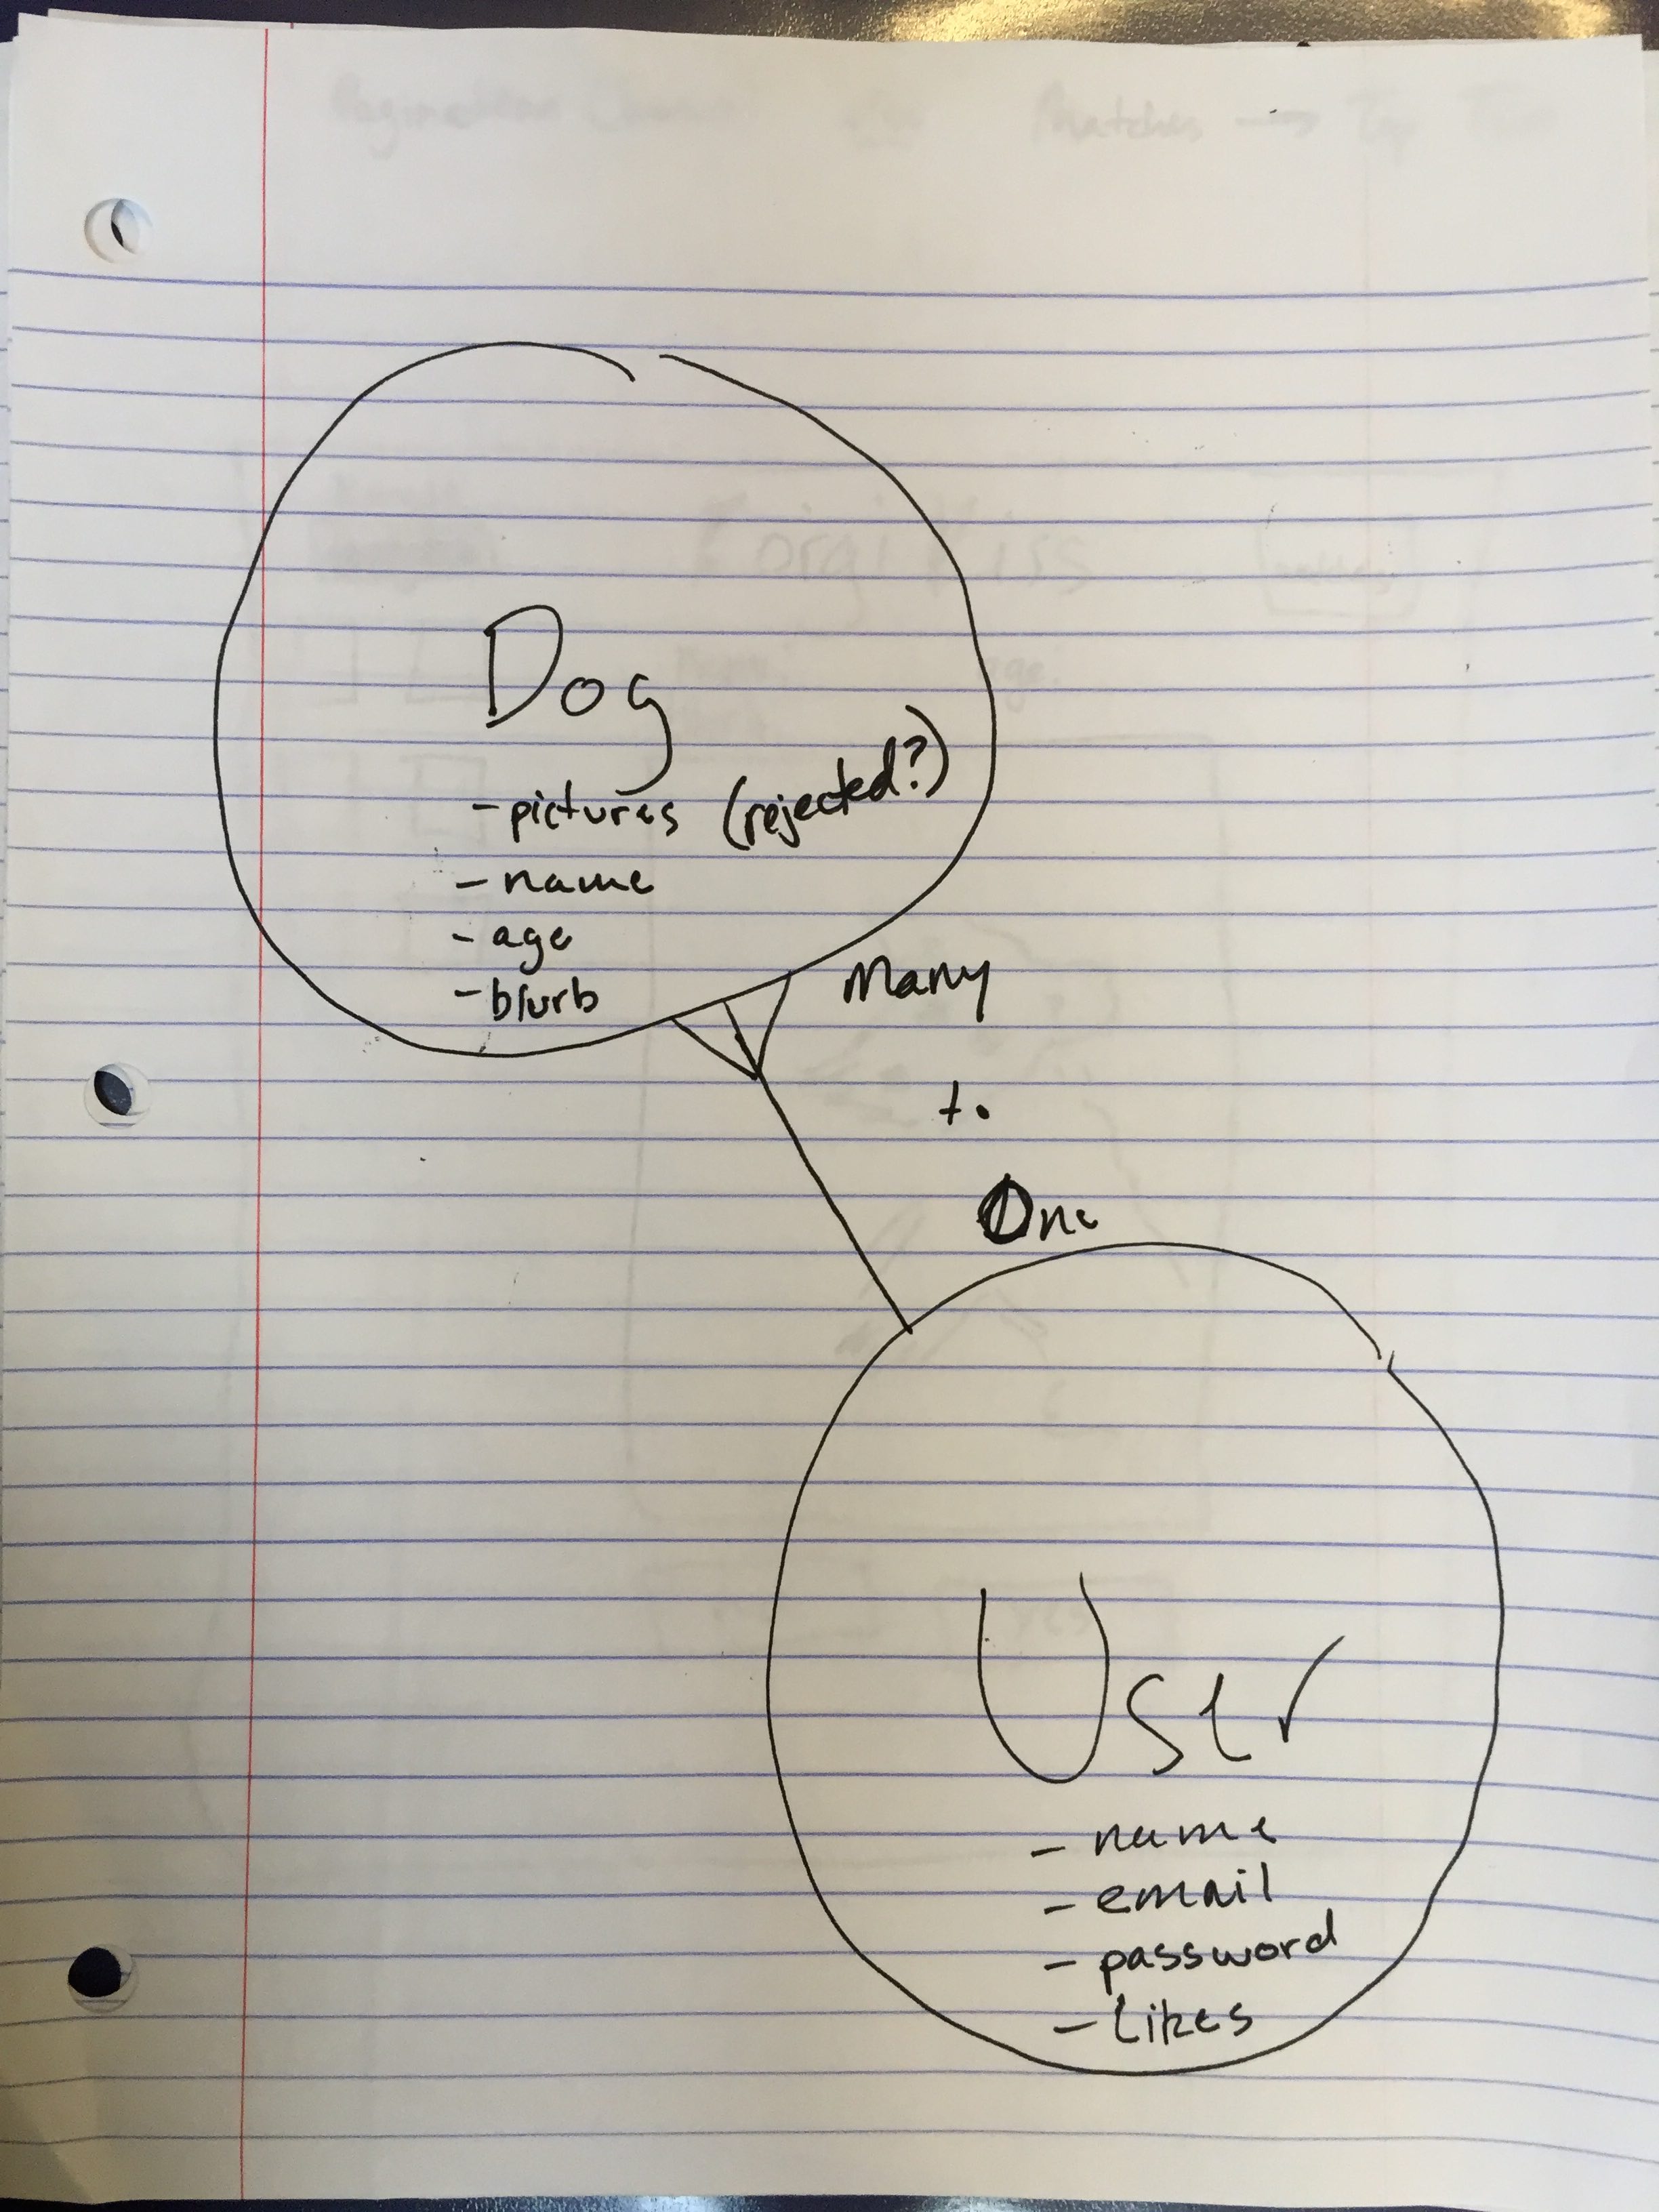 Matches
Corgi Kiss
Dog
- pictures (rejected?)
- name
- age
- blurb
Many
to
One
User
- name
- email
- password
- Likes